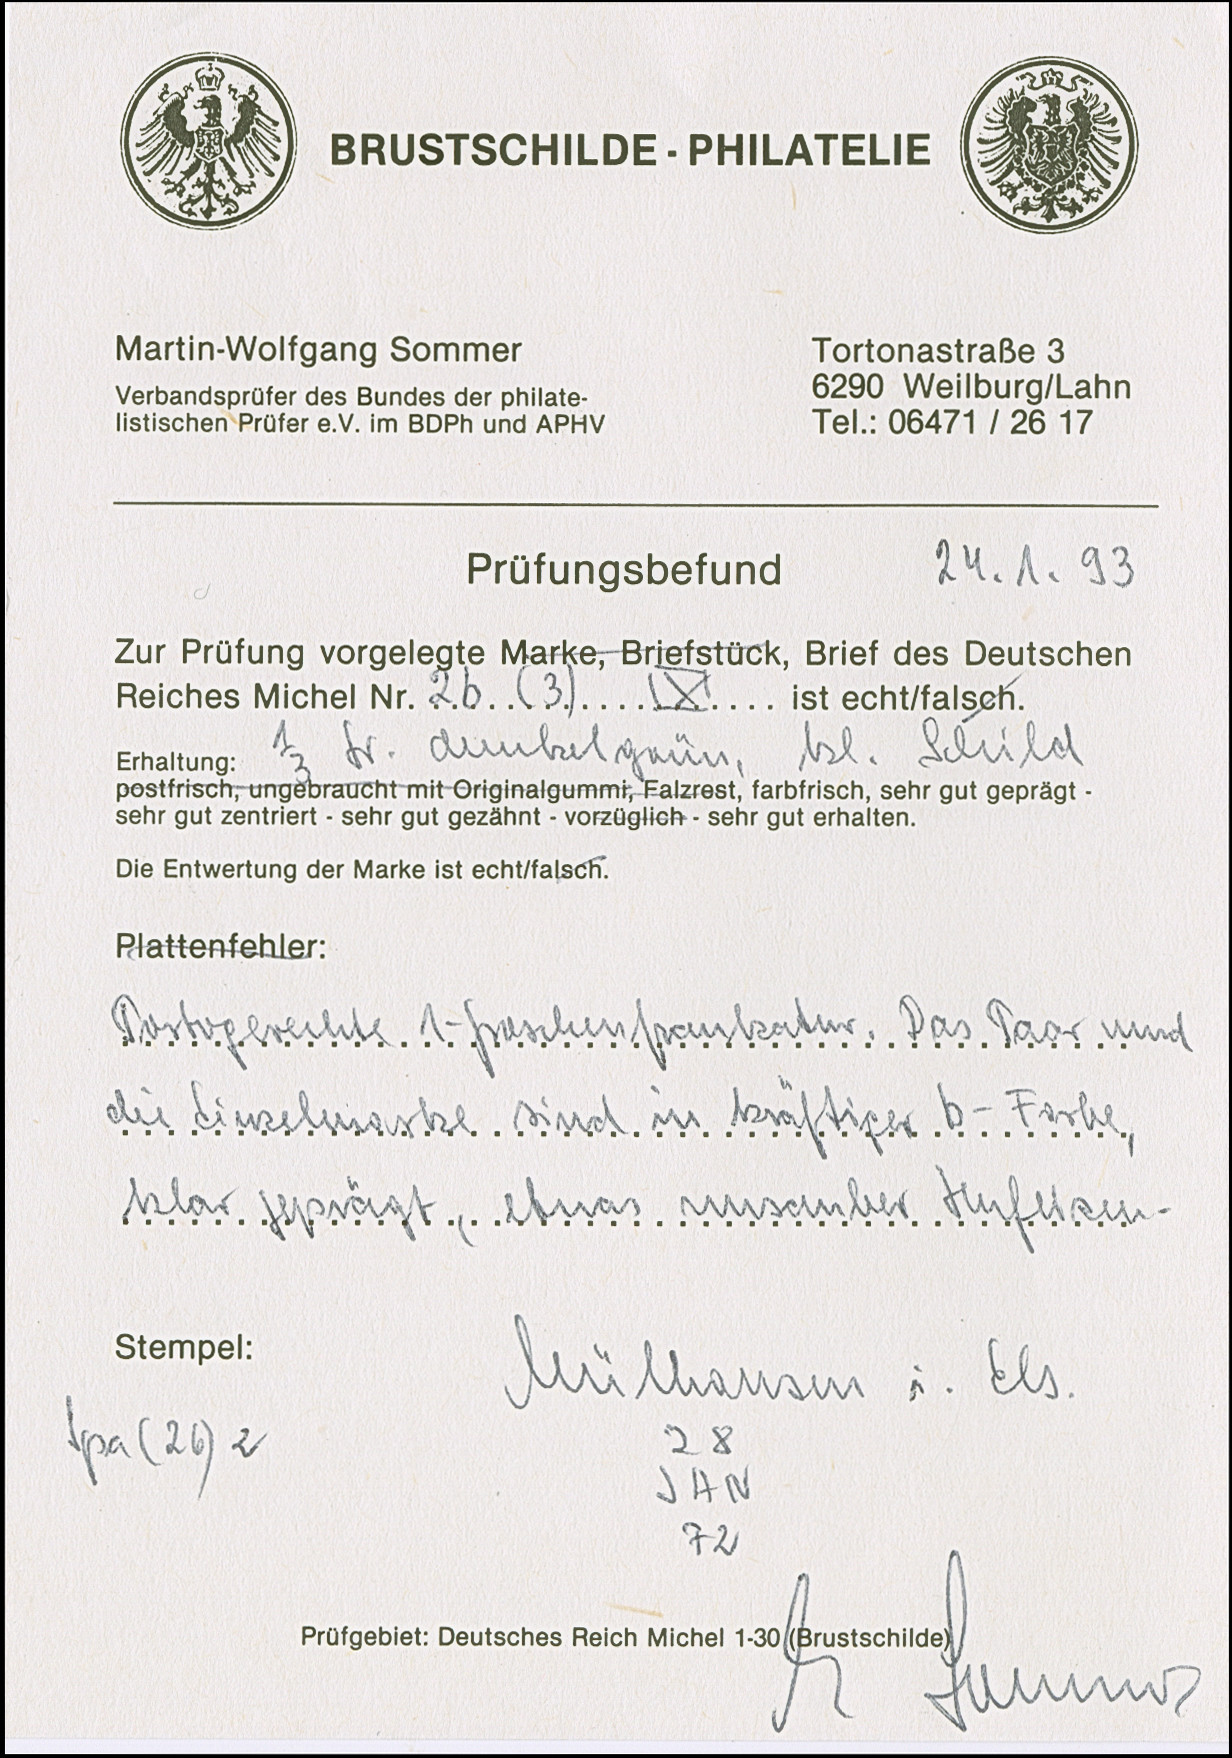 BRUSTSCHILDE - PHILATELIE
Martin-Wolfgang Sommer
Verbandsprüfer des Bundes der philate-
listischen Prüfer e.V. im BDPh und APHV
Tortonastraße 3
6290 Weilburg/Lahn
Tel.: 06471 / 26 17
Prüfungsbefund 24.1.93
Zur Prüfung vorgelegte Marke, Briefstück, Brief des Deutschen
Reiches Michel Nr. 2b (3) ist echt/falsch.
Erhaltung: 1/3 Gr. dunkelgrün, kl. Schild
postfrisch, ungebraucht mit Originalgummi, Falzrest, farbfrisch, sehr gut geprägt -
sehr gut zentriert - sehr gut gezähnt - vorzüglich - sehr gut erhalten.
Die Entwertung der Marke ist echt/falsch.
Plattenfehler:
Portogerechte 1-Groschenfrankatur. Das Paar und
die Einzelmarke sind in kräftiger b-Farbe,
klar geprägt, etwas unsauber Hufeisen-
Stempel: Mülhausen i. Els.
Spa (26) 2
28
JAN
72
Prüfgebiet: Deutsches Reich Michel 1-30 (Brustschilde)
Sommer